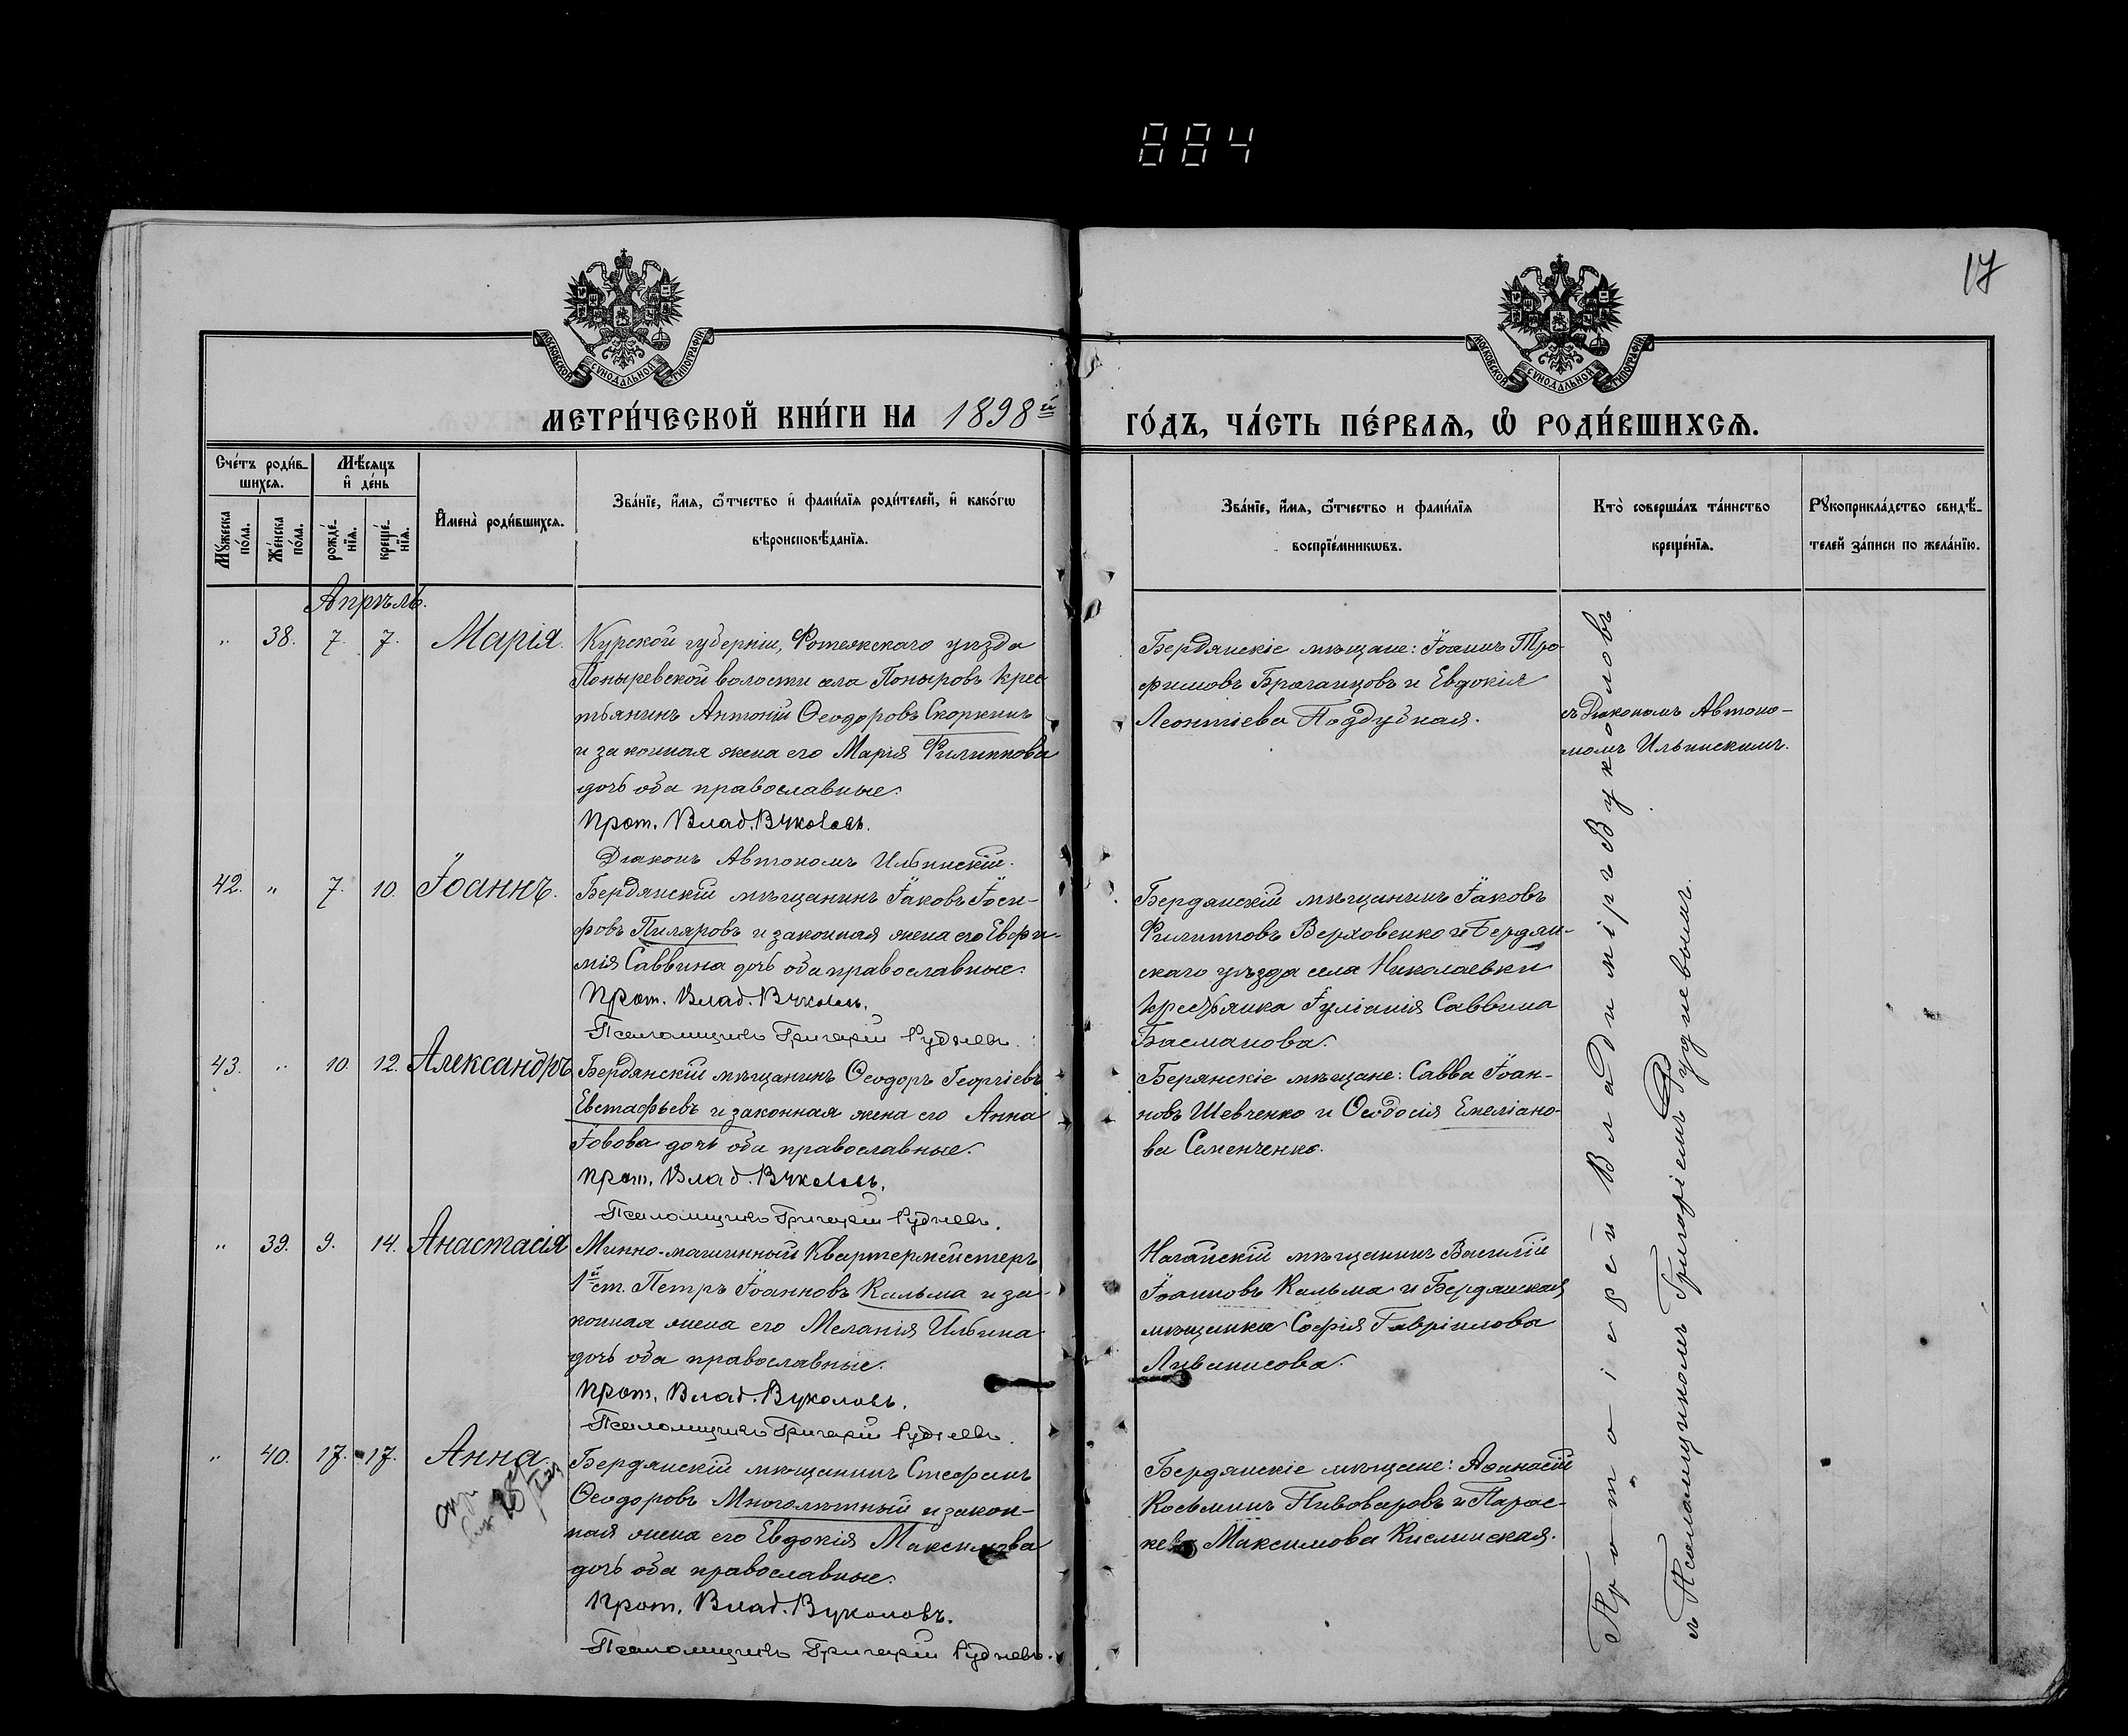 884
17
МОСКОВСКОЙ СУНОДАЛЬНОЙ ТИПОГРАФІИ
МОСКОВСКОЙ СУНОДАЛЬНОЙ ТИПОГРАФІИ
МЕТРИ́ЧЕСКОЙ КНИ́ГИ НА 1898й
ГО́ДЪ, ЧА́СТЬ ПЕ́РВАѦ, Ѡ҆ РОДИ́ВШИХСѦ.
Сче́тъ роди́в-
шихсѧ.
Мѣ́сѧцъ
и҆ де́нь
Мꙋ́жеска
по́ла.
Же́нска
по́ла.
рожде́-
нїѧ.
креще́-
нїѧ.
И҆мена̀ роди́вшихсѧ.
Зва́нїе, и҆́мѧ, ѻ҆́тчество и҆ фами́лїѧ роди́телей, и҆ како́гѡ
вѣроисповѣ́данїѧ.
Зва́нїе, и҆́мѧ, ѻ҆́тчество и фами́лїѧ
воспрїе́мникѡвъ.
Кто̀ соверша́лъ та́инство
креще́нїѧ.
Рꙋкоприкла́дство свидѣ́-
телей за́писи по жела́нїю.
Апрѣль.
" 38. 7. 7. Марія.
Курской губерніи, Фотежскаго уѣзда
Поныревской волости села Поныровъ крес
тьянинъ Антоній Ѳеодоровъ Скоркинъ
и законная жена его Марія Филиппова
дочь оба православные.
Прот. Влад. Вуколовъ.
Діаконъ Автономъ Ильинскій.
Бердянскіе мѣщане: Іоаннъ Тро-
фимовъ Браганцовъ и Евдокія
Леонтіева Поддубная.
съ Діакономъ Автоно-
момъ Ильинскимъ.
42. " 7. 10. Іоаннъ.
Бердянскій мѣщанинъ Іаковъ Іоси-
фовъ Пиляровъ и законная жена его Евфи-
мія Саввина дочь оба православные.
Прот. Влад. Вуколовъ.
Псаломщикъ Григорій Рудневъ.
Бердянскій мѣщанинъ Іаковъ
Филипповъ Верховенко и Бердян-
скаго уѣзда села Николаевки
крестьянка Іуліанія Саввина
Басманова.
43. " 10. 12. Александръ
Бердянскій мѣщанинъ Ѳеодоръ Георгіевъ
Евстафьевъ и законная жена его Анна
Іовова дочь оба православные.
Прот. Влад. Вуколовъ.
Псаломщикъ Григорій Рудневъ.
Берянскіе мѣщане: Савва Іоан-
новъ Шевченко и Ѳеодосія Емеліано-
ва Семенченко.
" 39. 9. 14. Анастасія
Минно-машинный Квартермейстеръ
1й ст. Петръ Іоанновъ Кальма и за-
конная жена его Меланія Ильина
дочь оба православные.
Прот. Влад. Вуколовъ.
Псаломщикъ Григорій Рудневъ.
Ногайскій мѣщанинъ Василій
Іоанновъ Кальма и Бердянская
мѣщанка Софія Гавріилова
Ливанисова.
" 40. 17. 17. Анна.
Бердянскій мѣщанинъ Стефанъ
Ѳеодоровъ Многолѣтный и закон-
ная жена его Евдокія Максимова
дочь оба православные.
Прот. Влад. Вуколовъ.
Псаломщикъ Григорій Рудневъ.
Бердянскіе мѣщане: Аѳанасій
Косьминъ Пивоваровъ и Парас-
кева Максимова Кислинская.
Протоіерей Владиміръ Вуколовъ
съ Псаломщикомъ Григоріемъ Рудневымъ.